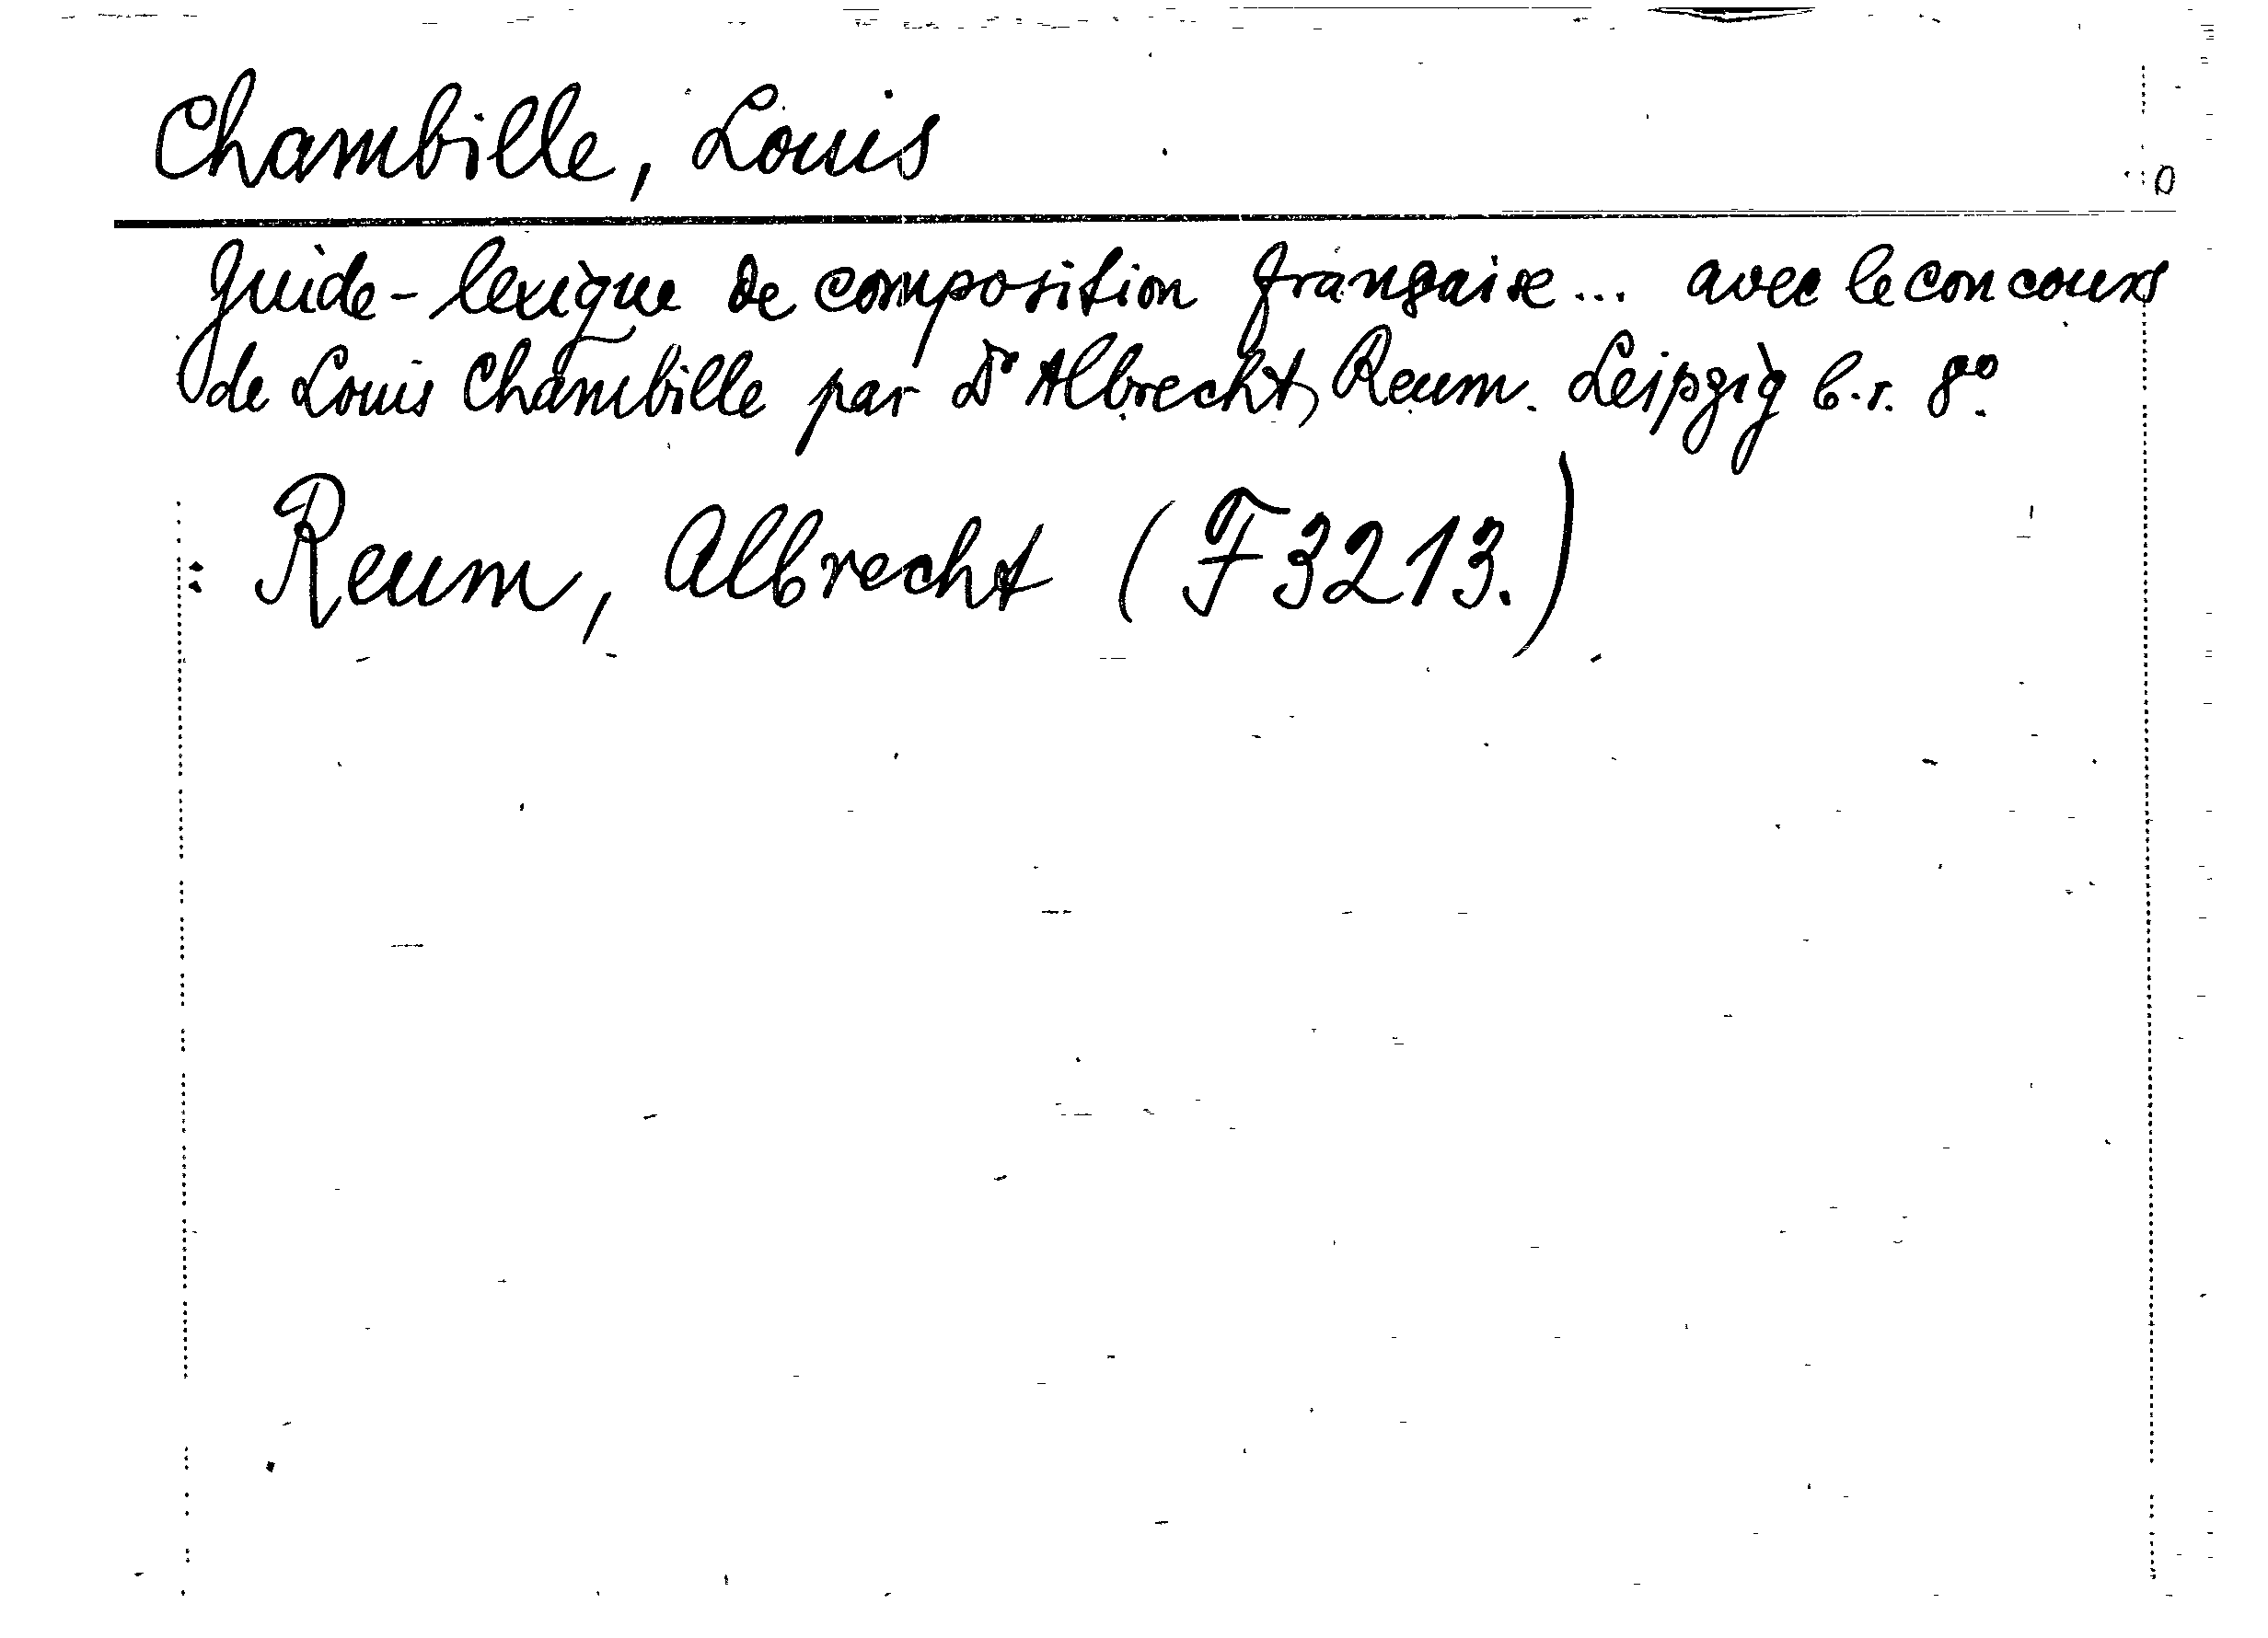 Chambille, Louis
Guide-lexique de composition française... avec le concours
de Louis Chambille par Dr Albrecht Reum. Leipzig b.r. 8°.
: Reum, Albrecht (F 3213.)